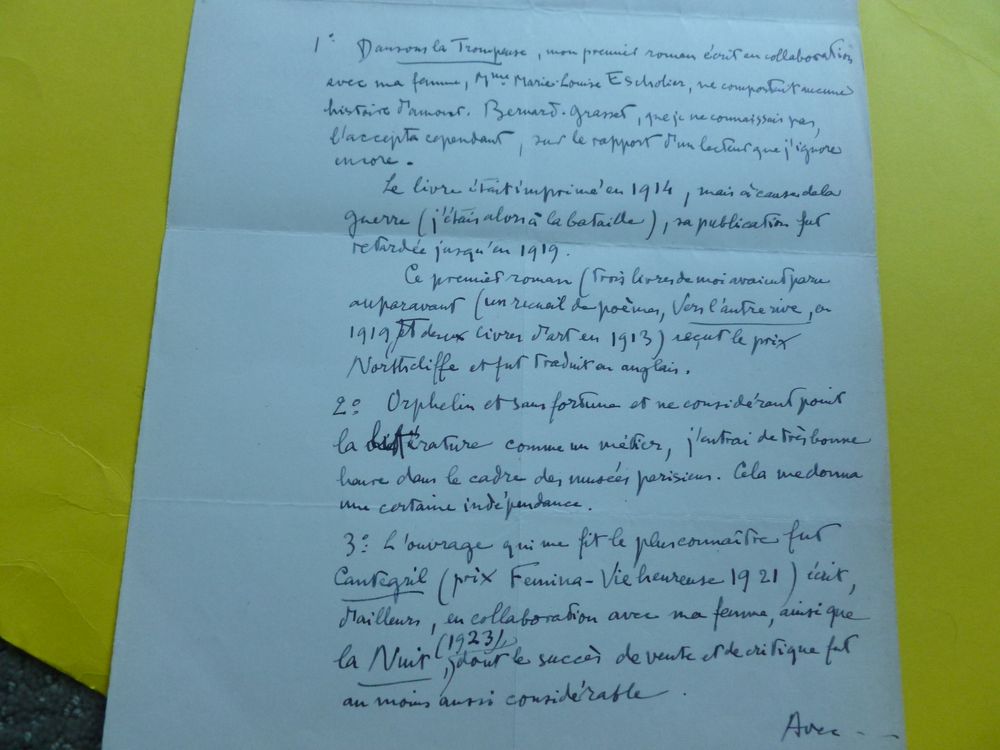 1° Dansons la Trompeuse, mon premier roman écrit en collaboration
avec ma femme, Mme Marie-Louise Escholier, ne comportait aucune
histoire d'amour. Bernard-Grasset, que je ne connaissais pas,
l'accepta cependant, sur le rapport d'un lecteur que j'ignore
encore.
Le livre était imprimé en 1914, mais à cause de la
guerre (j'étais alors à la bataille), sa publication fut
retardée jusqu'en 1919.
Ce premier roman (trois livres de moi avaient paru
auparavant (un recueil de poèmes, Vers l'autre rive, en
1919 et deux livres d'art en 1913) reçut le prix
Northcliffe et fut traduit en anglais.
2° Orphelin et sans fortune et ne considérant point
la littérature comme un métier, j'entrai de très bonne
heure dans le cadre des musées parisiens. Cela me donna
une certaine indépendance.
3° L'ouvrage qui me fit le plus connaître fut
Cantegril (prix Femina-Vie heureuse 1921) écrit,
d'ailleurs, en collaboration avec ma femme, ainsi que
la Nuit (1923), dont le succès de vente et de critique fut
au moins aussi considérable.
Avec --